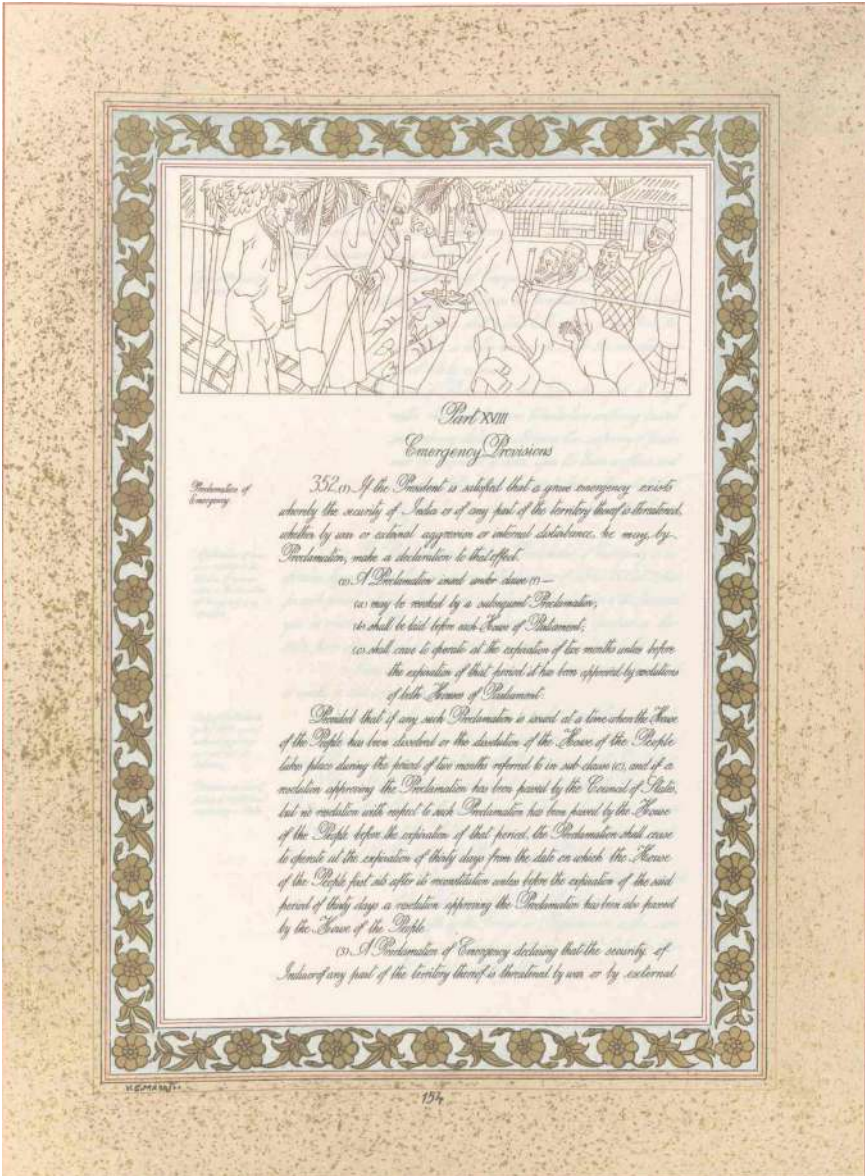 Part XVIII
Emergency Provisions
Proclamation of
Emergency
352.(1) If the President is satisfied that a grave emergency exists
whereby the security of India or of any part of the territory thereof is threatened,
whether by war or external aggression or internal disturbance, he may, by
Proclamation, make a declaration to that effect.
(2) A Proclamation issued under clause (1)—
(a) may be revoked by a subsequent Proclamation;
(b) shall be laid before each House of Parliament;
(c) shall cease to operate at the expiration of two months unless before
the expiration of that period it has been approved by resolutions
of both Houses of Parliament:
Provided that if any such Proclamation is issued at a time when the House
of the People has been dissolved or the dissolution of the House of the People
takes place during the period of two months referred to in sub-clause (c), and if a
resolution approving the Proclamation has been passed by the Council of States,
but no resolution with respect to such Proclamation has been passed by the House
of the People before the expiration of that period, the Proclamation shall cease
to operate at the expiration of thirty days from the date on which the House
of the People first sits after its reconstitution unless before the expiration of the said
period of thirty days a resolution approving the Proclamation has been also passed
by the House of the People.
(3) A Proclamation of Emergency declaring that the security of
India or of any part of the territory thereof is threatened by war or by external
154